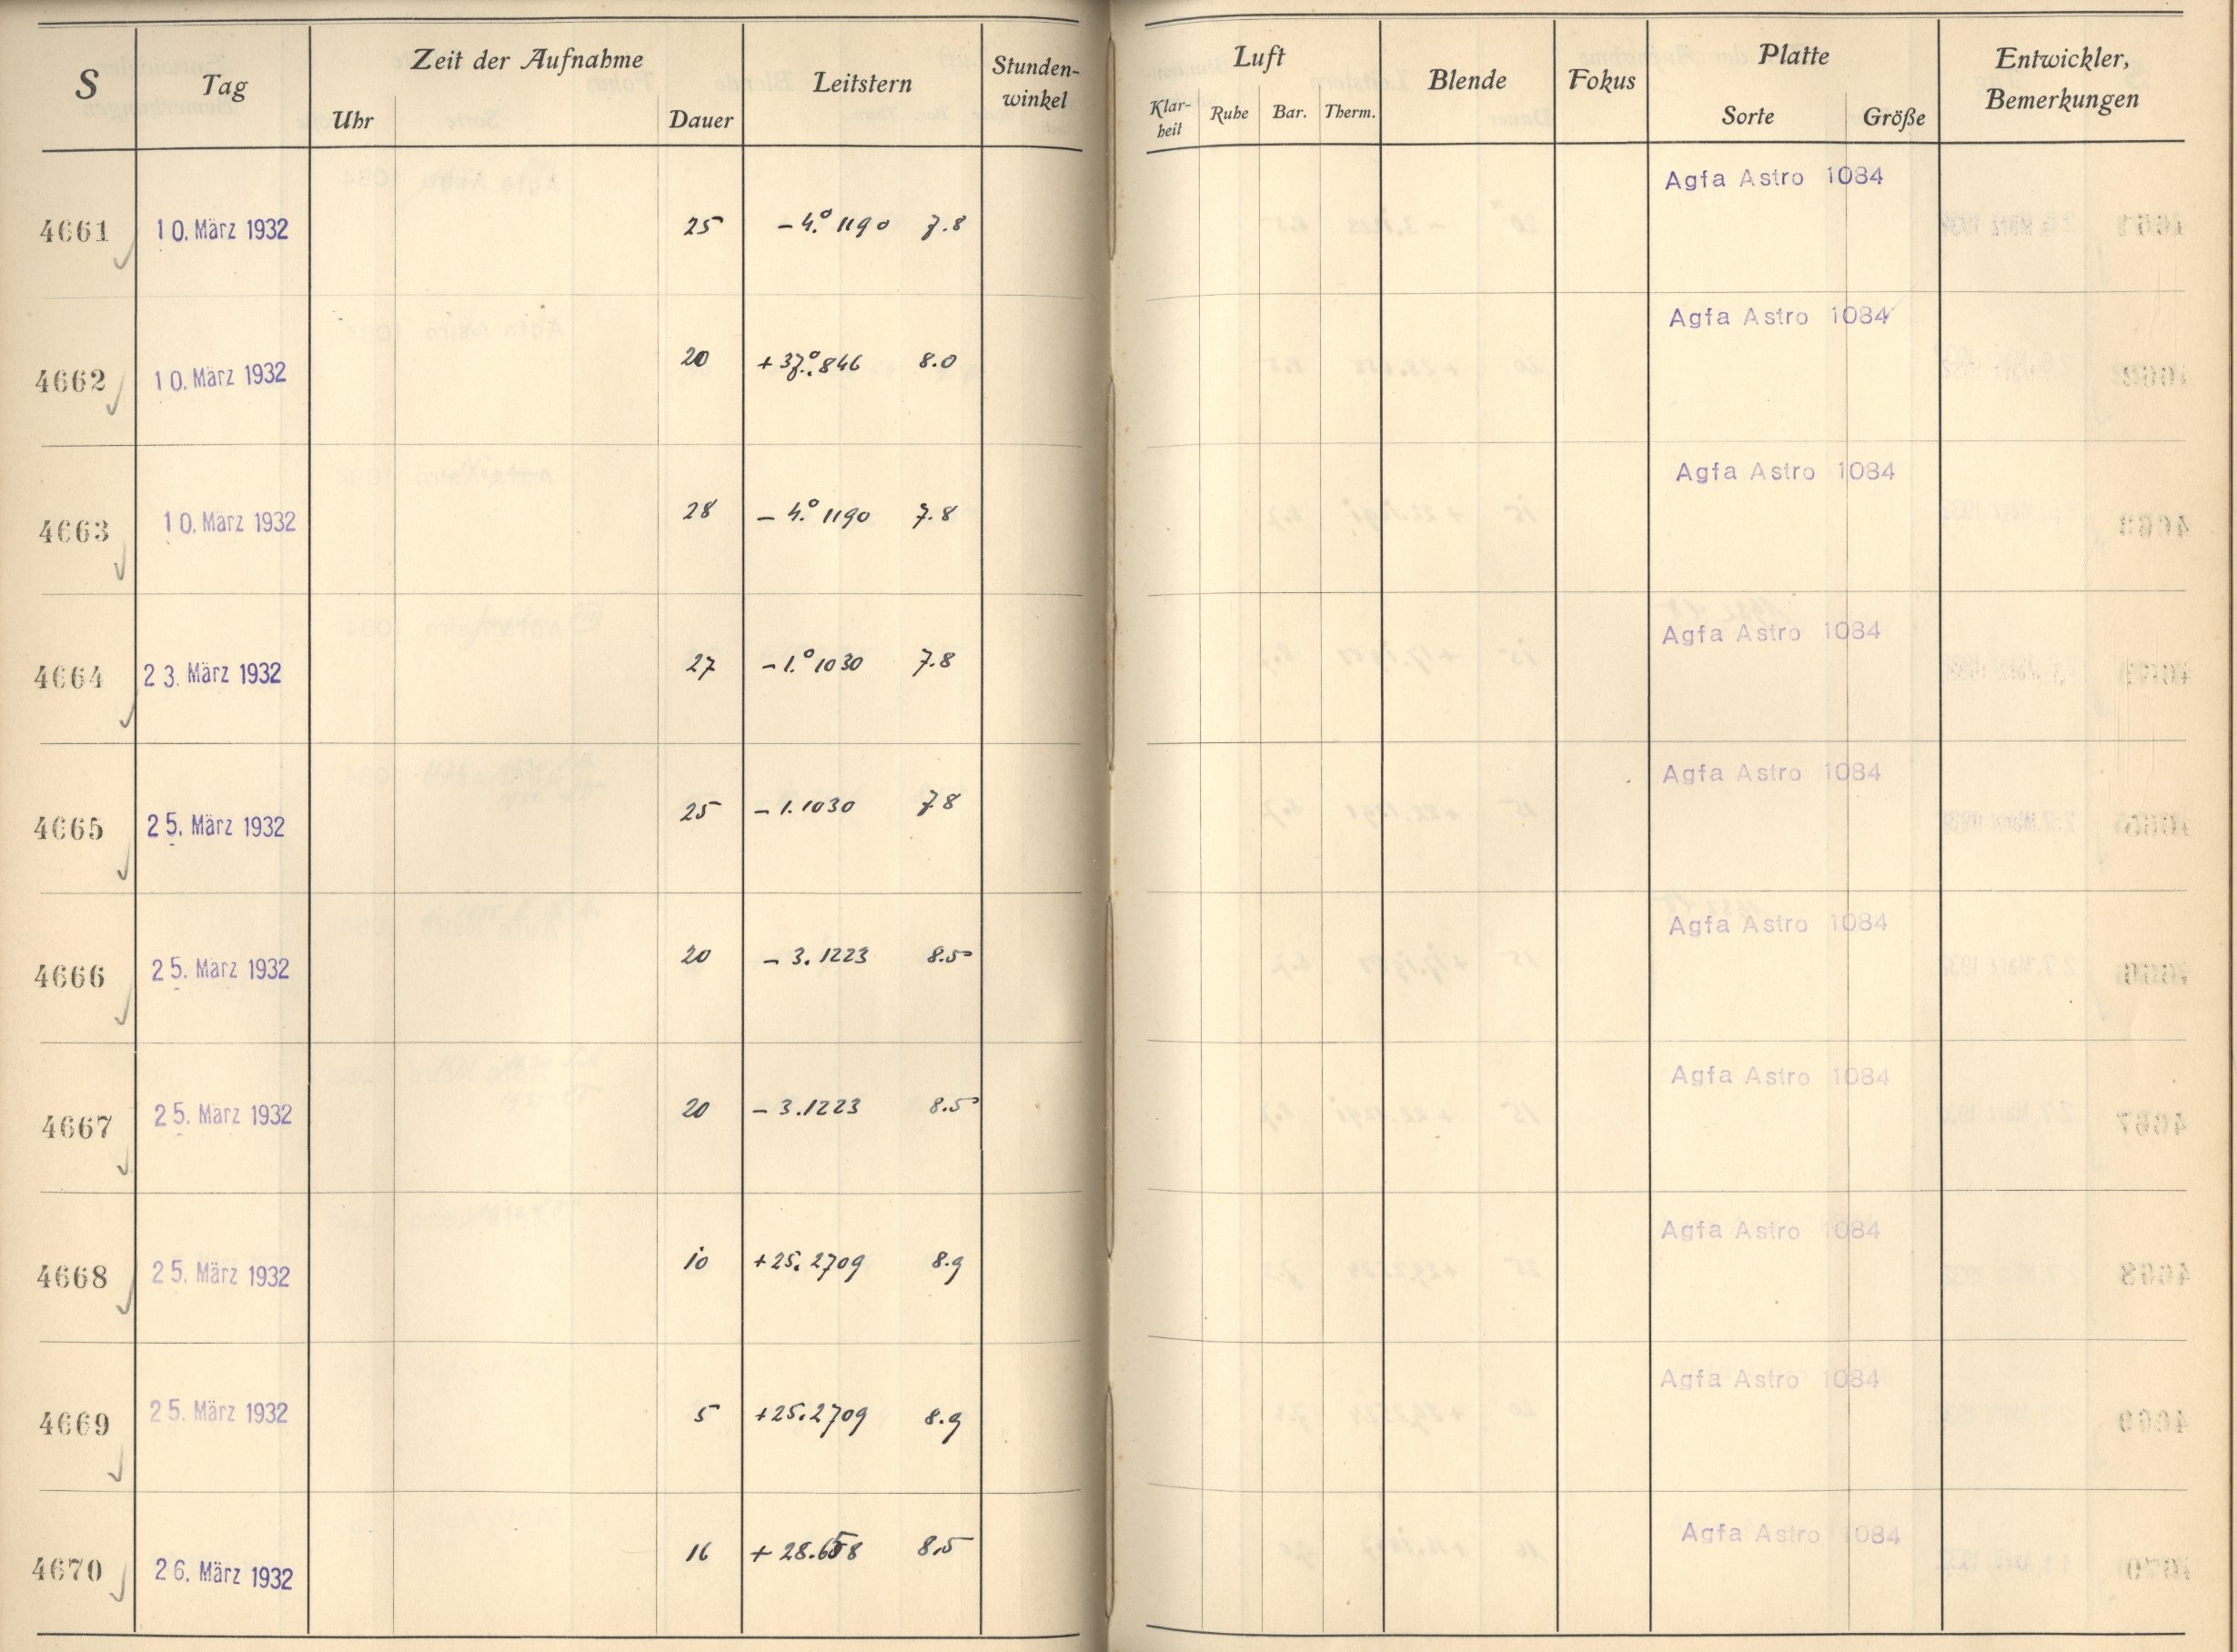 S Tag Zeit der Aufnahme Leitstern Stunden-winkel Luft Blende Fokus Platte Entwickler, Bemerkungen
Uhr Dauer Klar-heit Ruhe Bar. Therm. Sorte Größe
4661 10. März 1932 25 – 4.° 1190 7.8 Agfa Astro 1084
4662 10. März 1932 20 + 37.° 846 8.0 Agfa Astro 1084
4663 10. März 1932 28 – 4.° 1190 7.8 Agfa Astro 1084
4664 23. März 1932 27 – 1.° 1030 7.8 Agfa Astro 1084
4665 25. März 1932 25 – 1.1030 7.8 Agfa Astro 1084
4666 25. März 1932 20 – 3.1223 8.5 Agfa Astro 1084
4667 25. März 1932 20 – 3.1223 8.5 Agfa Astro 1084
4668 25. März 1932 10 + 25.2709 8.9 Agfa Astro 1084
4669 25. März 1932 5 + 25.2709 8.9 Agfa Astro 1084
4670 26. März 1932 16 + 28.658 8.5 Agfa Astro 1084